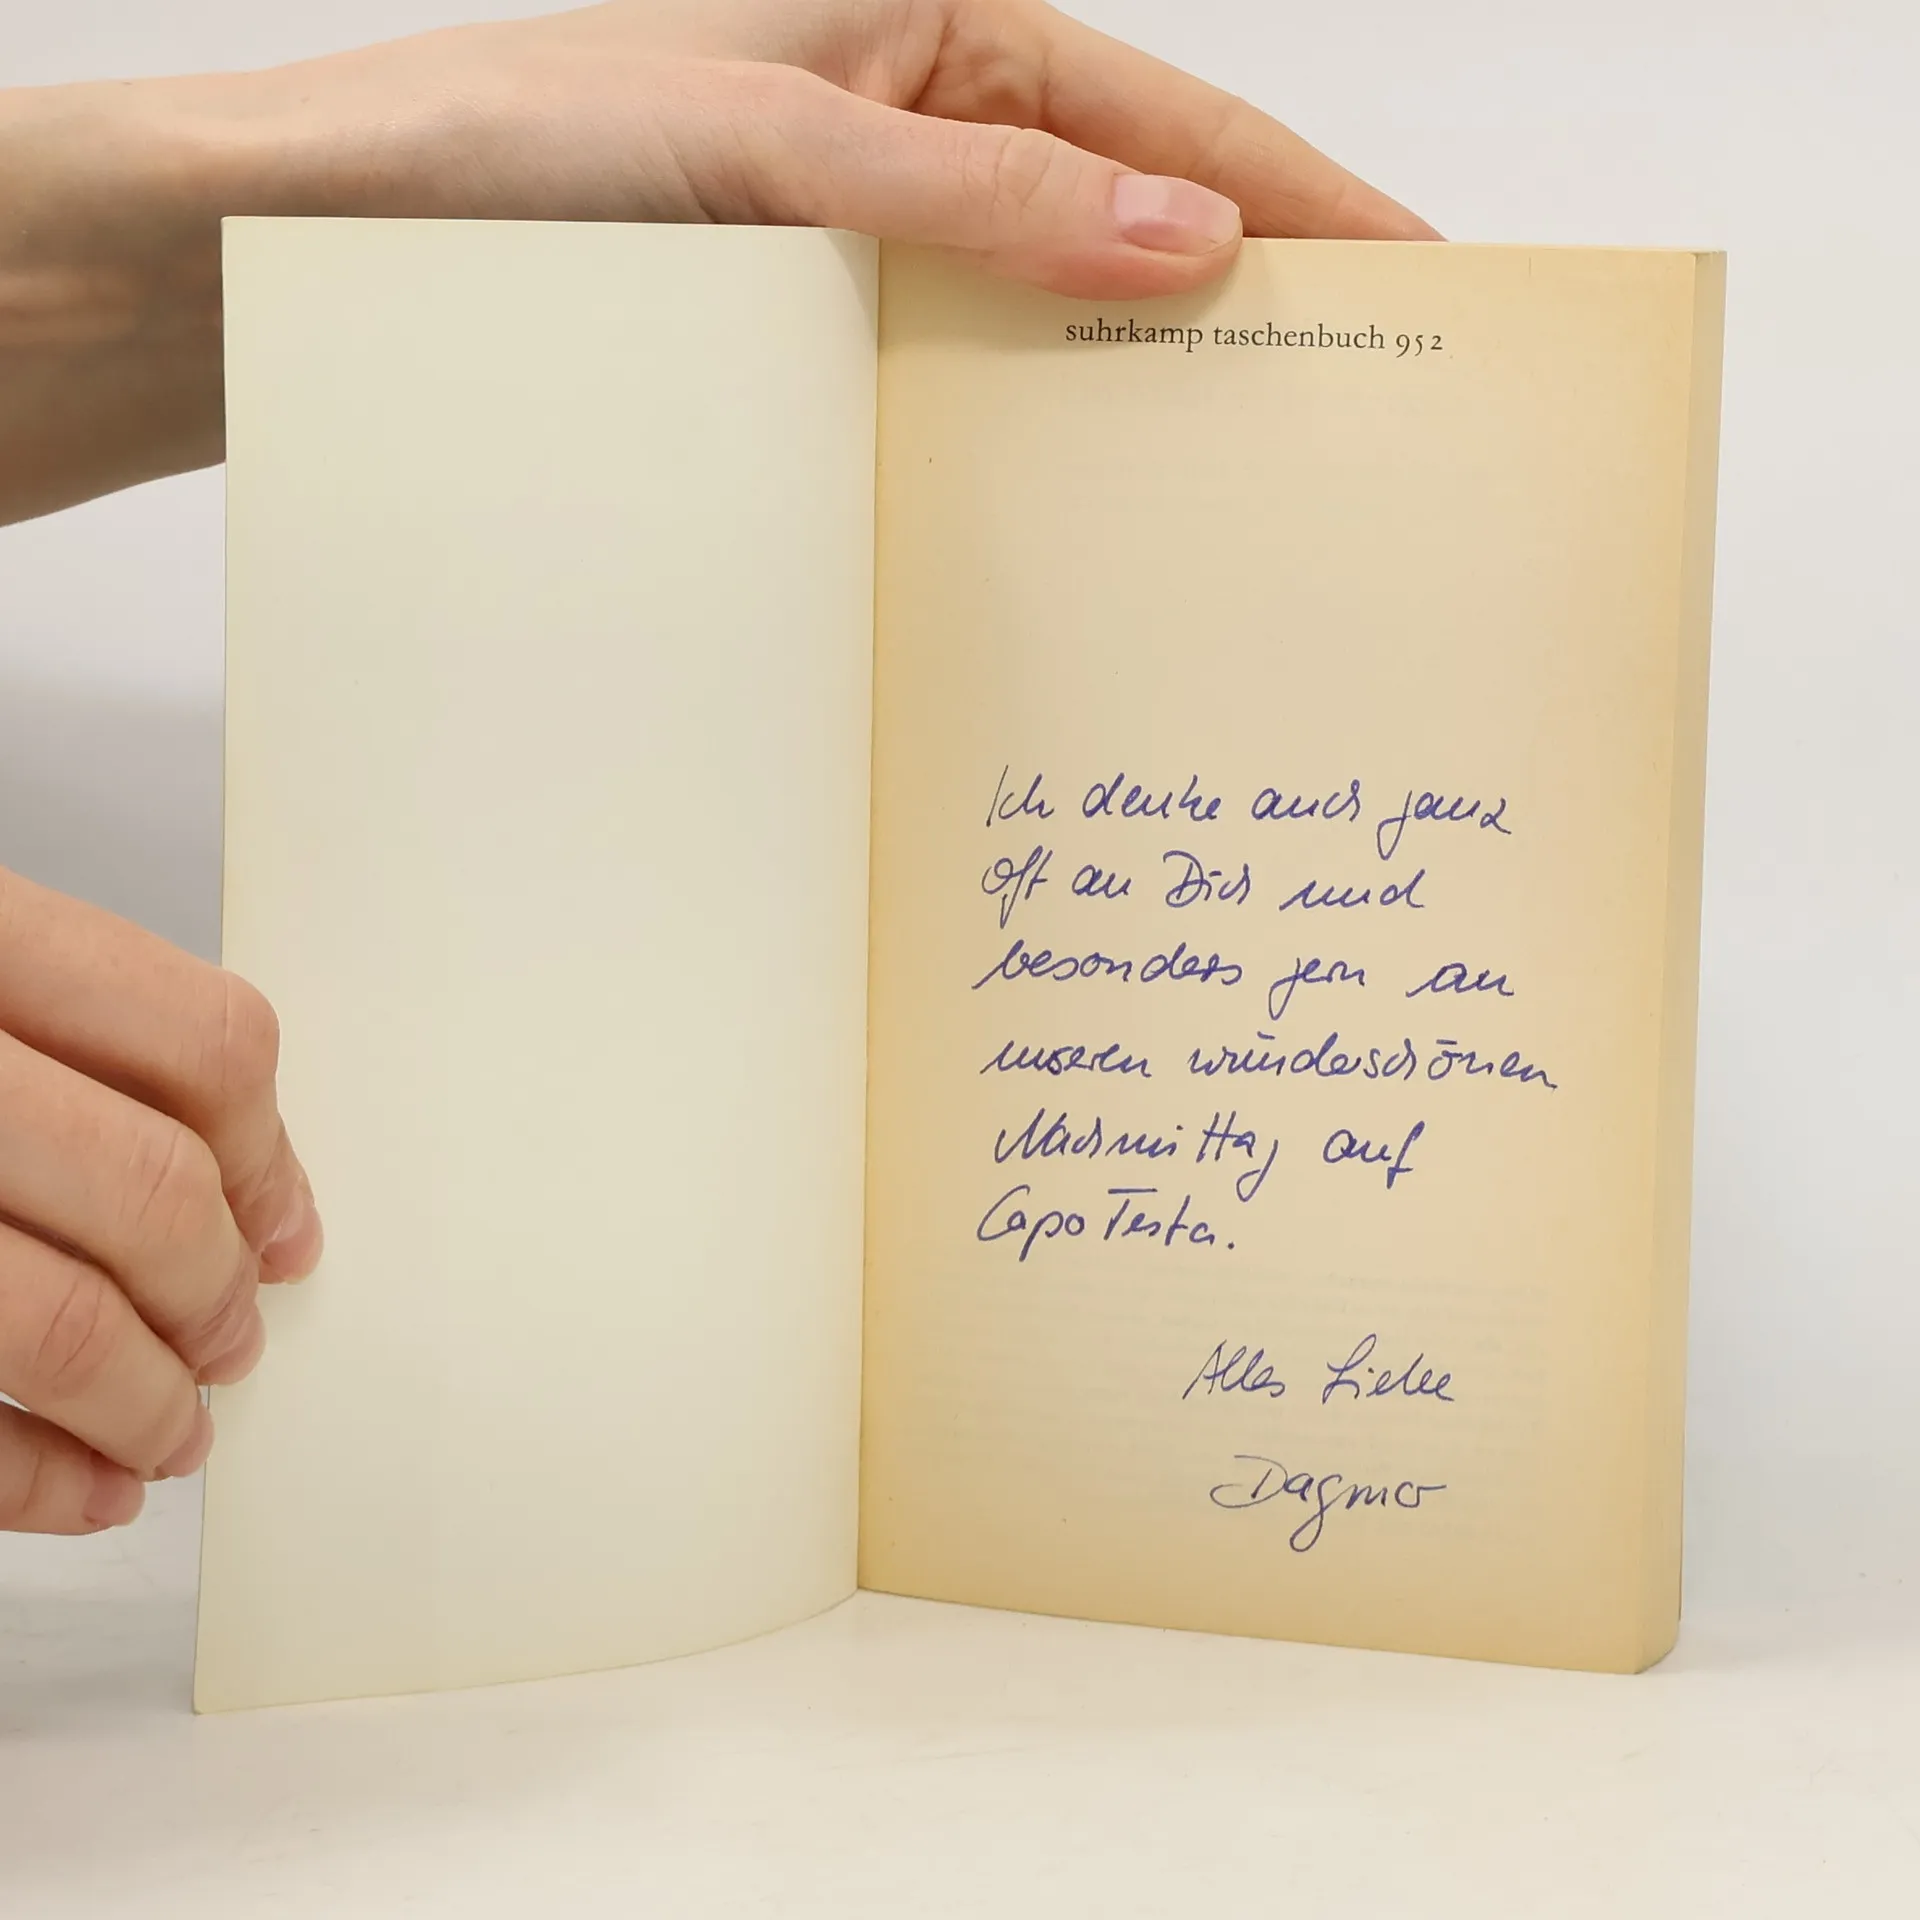 suhrkamp taschenbuch 952
Ich denke auch ganz
oft an Dich und
besonders gern an
unseren wunderschönen
Nachmittag auf
Capo Testa.
Alles Liebe
Dagmar